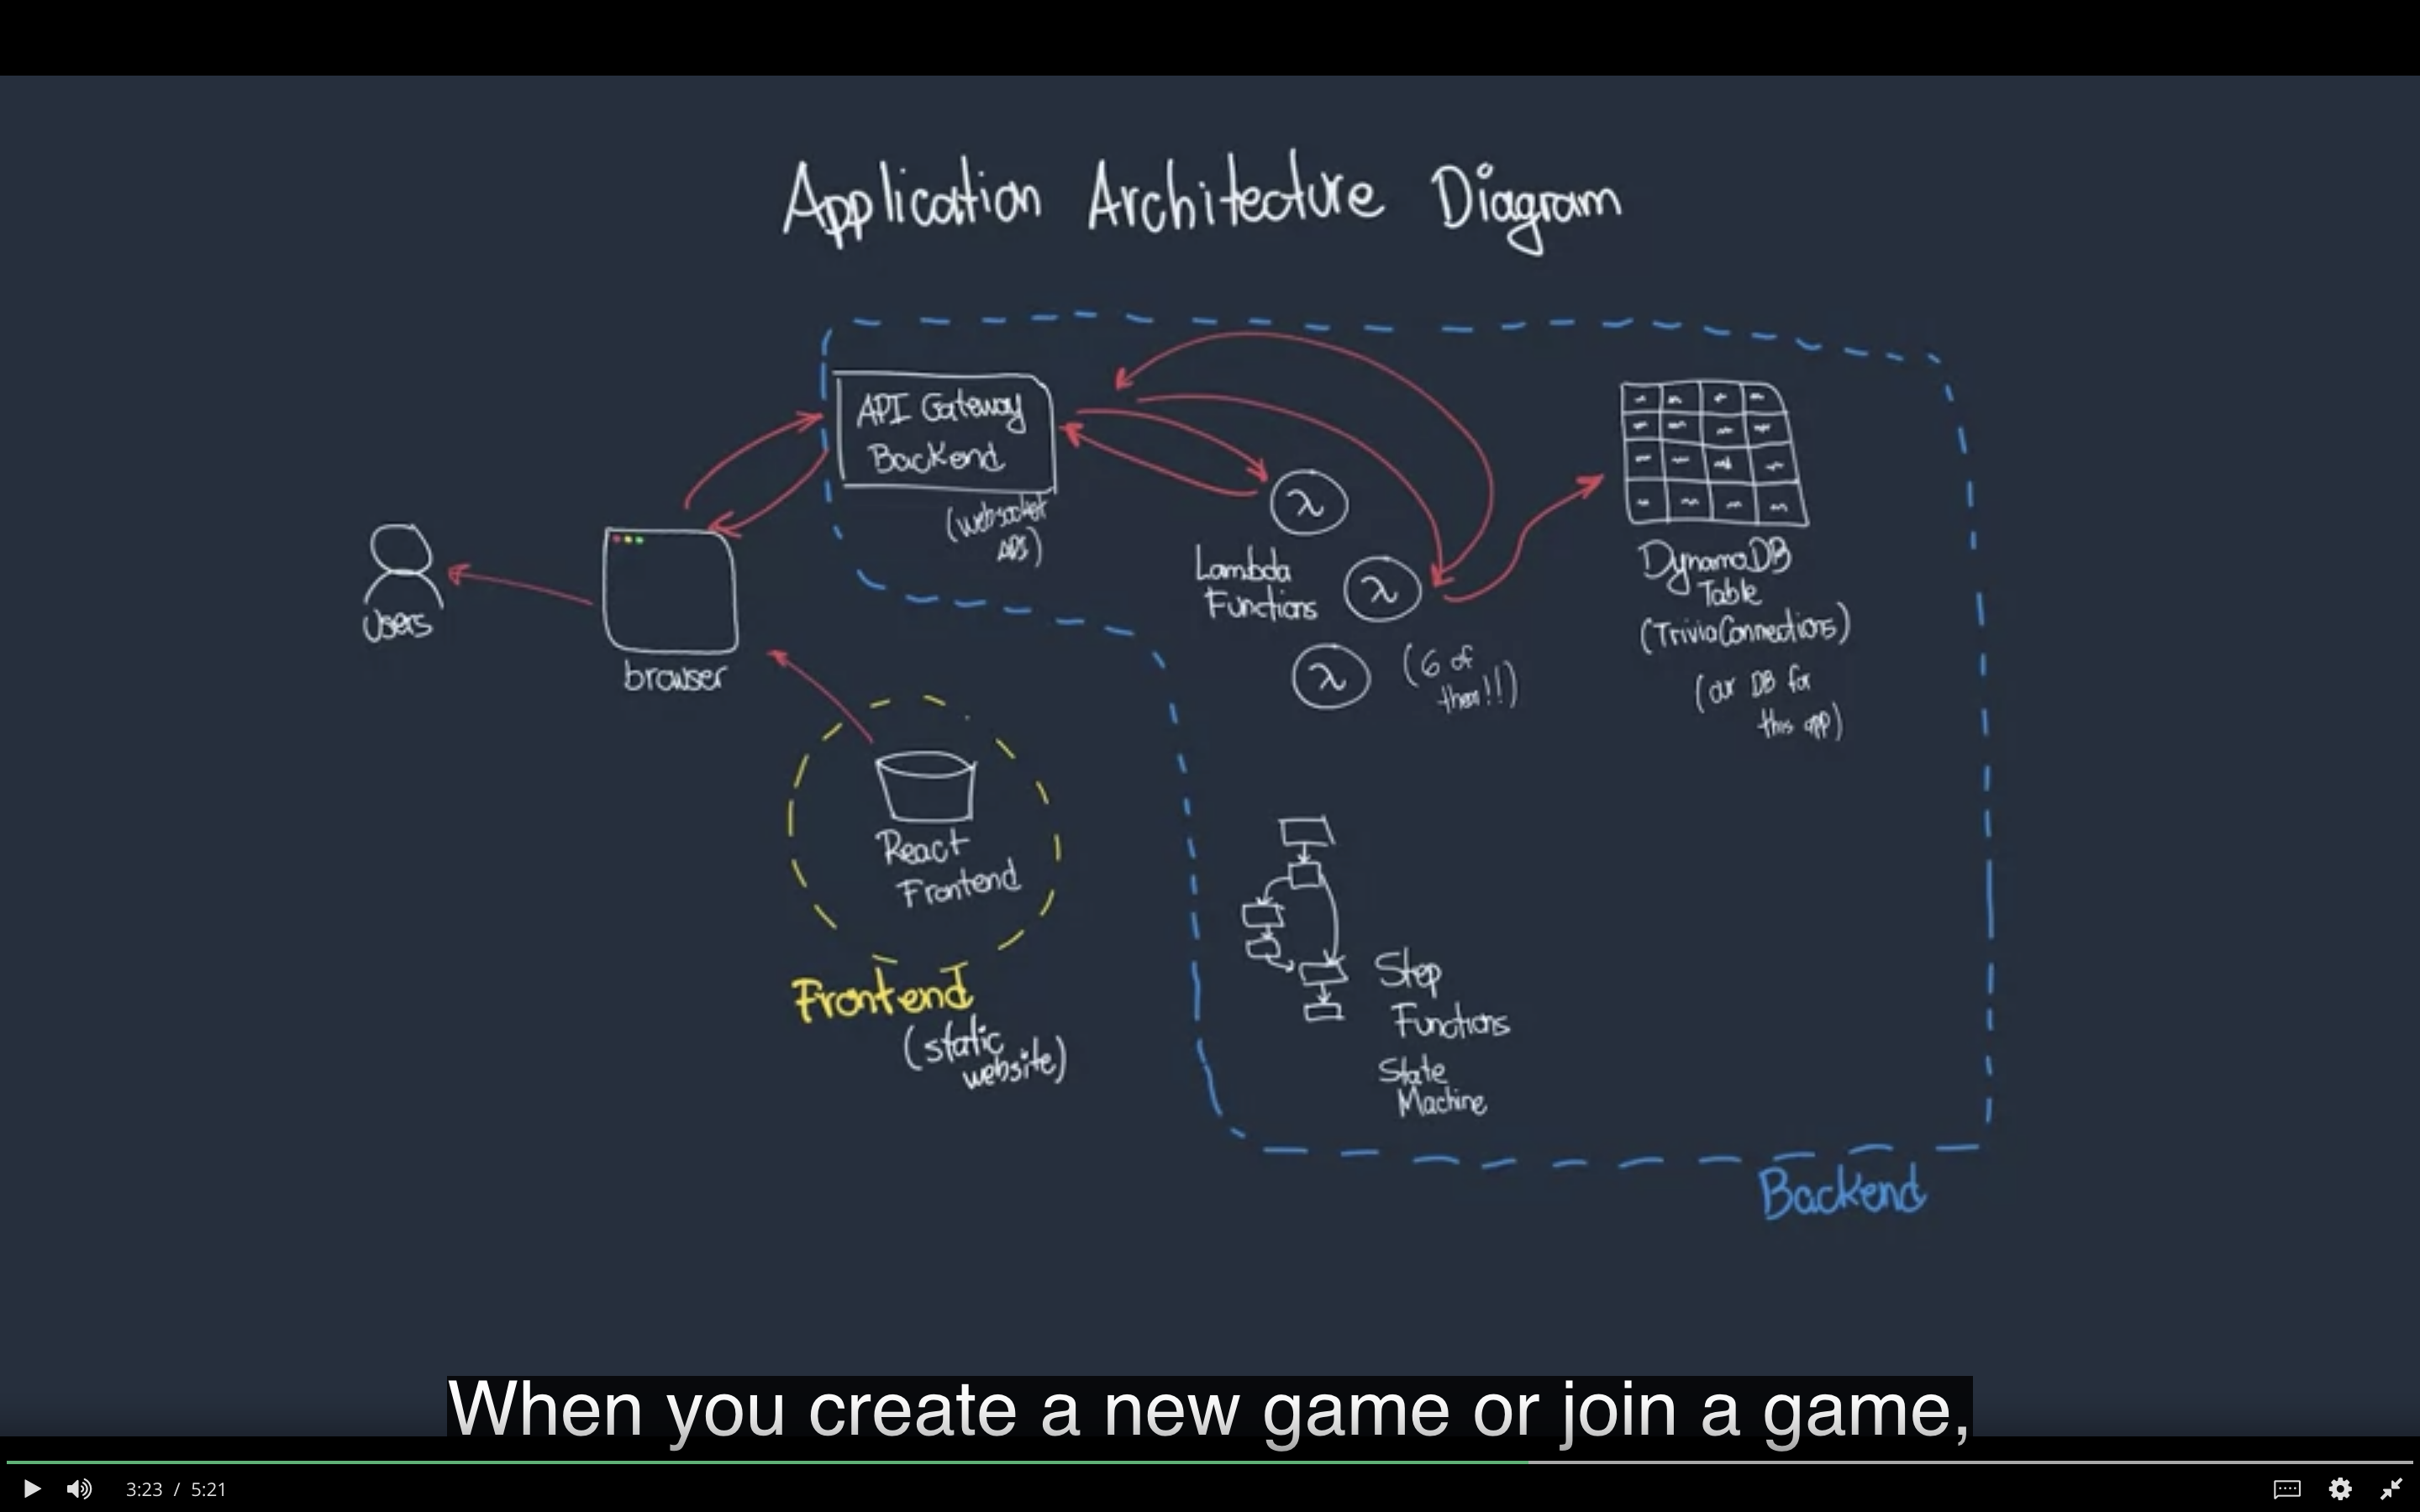 Application Architecture Diagram
API Gateway
Backend
(websocket
API)
Users
browser
λ
Lambda
Functions
λ
λ
(6 of
them!!)
DynamoDB
Table
(TriviaConnections)
(our DB for
this app)
React
Frontend
Frontend
(static
website)
Step
Functions
State
Machine
Backend
When you create a new game or join a game,
3:23 / 5:21